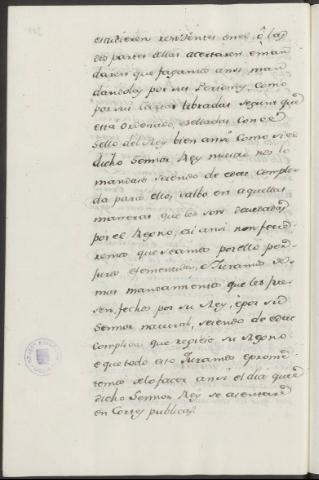 estuvieren residentes en el, ò la
dtas partes dellas acertaren, è man
daren que fagamos ansi man
dandolo por sus Personas, como
por sus Cartas libradas segun que
está Ordenado, è selladas con el
Sello del Rey bien ansi como si el
dicho Señor Rey mismo nos lo
mandase seiendo de edad comple
da para ello, salbo en aquellas
maneras que les son devedadas
por el Regno, è si ansi non ficie
remos que seamos por ello per
juros è fementidos, è Juramos de
mas mandamiento que les fue
sen fechos por su Rey, è por su
Señor natural, seiendo de edad
complida que regiese su Regno
e que todo esto Juramos è prome
temos de lo facer ansi el dia que el
dicho Señor Rey se asentare
en Cortes publicas.